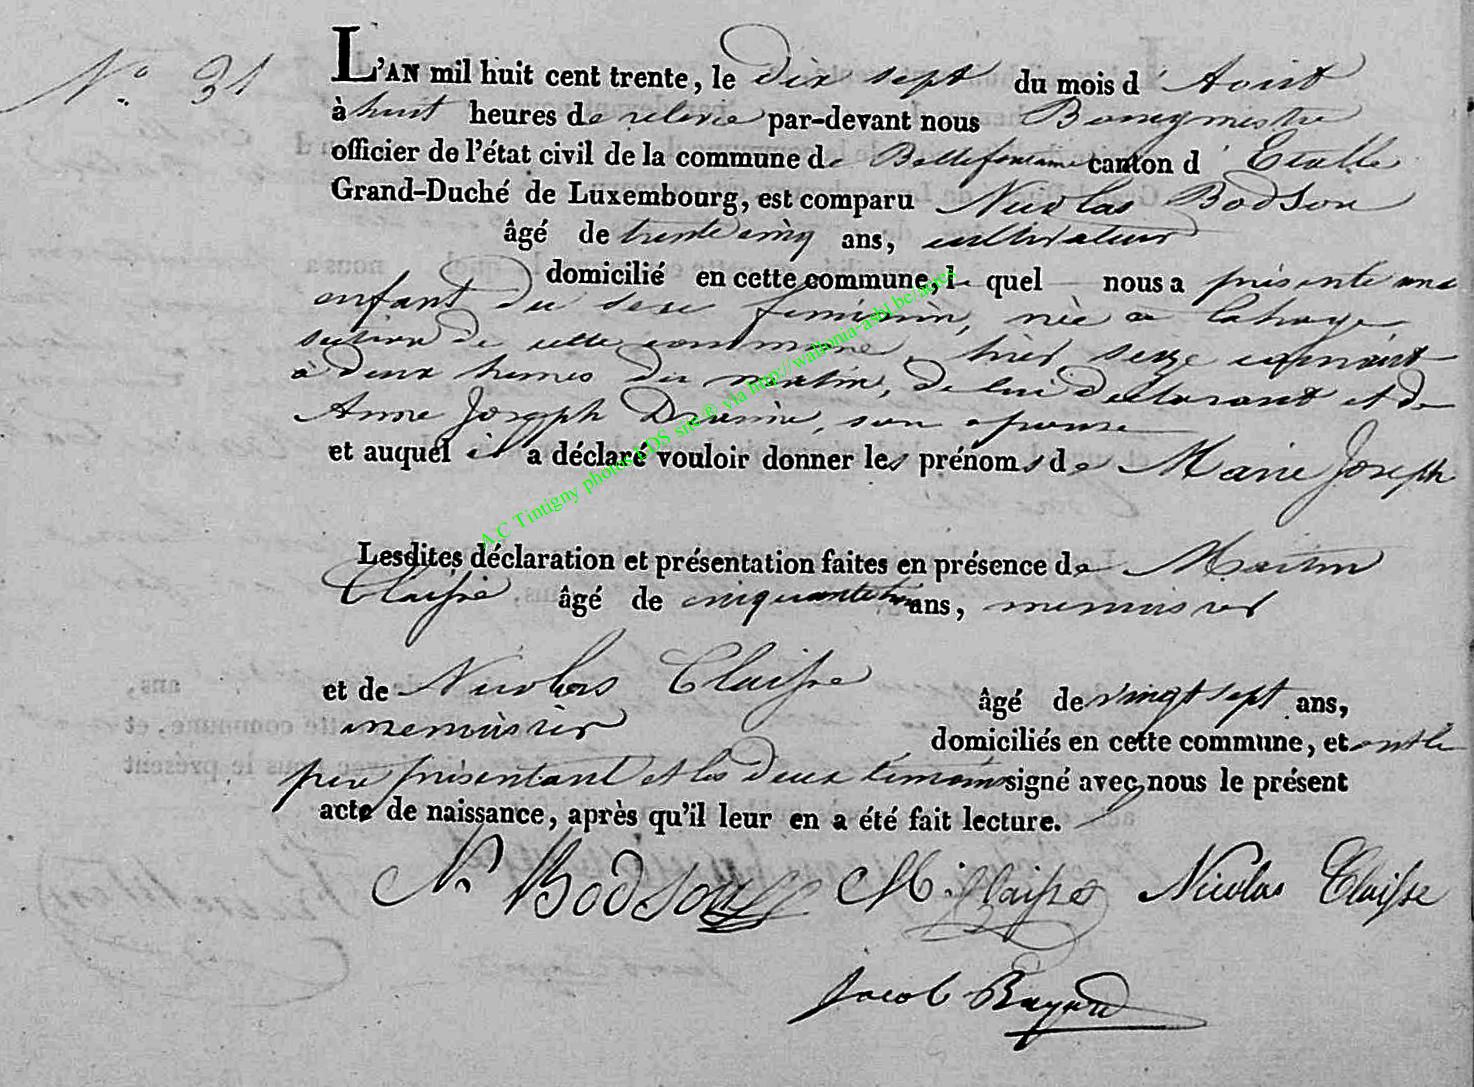 N.° 31
L'AN mil huit cent trente, le dix sept du mois d' Aout
à huit heures de relevée par-devant nous Bourgmestre
officier de l'état civil de la commune de Bellefontaine canton d' Etalle
Grand-Duché de Luxembourg, est comparu Nicolas Bodson
âgé de trente cinq ans, cultivateur
domicilié en cette commune, le quel nous a présenté une
enfant du sexe féminin, née a Lahage
section de cette commune, hier seize courant
à deux heures du matin, de lui déclarant et de
Anne Joseph son epouse
et auquel il a déclaré vouloir donner les prénoms de Marie Joseph
Lesdites déclaration et présentation faites en présence de Martin
Claisse âgé de cinquante ans, menuisier
et de Nicolas Claisse âgé de vingt sept ans,
menuisier domiciliés en cette commune, et ont le
père présentant et les deux témoins signé avec nous le présent
acte de naissance, après qu'il leur en a été fait lecture.
N. Bodson M. Claisse Nicolas Claisse
Jacob Bayard
A.C Tintigny photos LDS site © via http://wallonia-asbl.be/actes